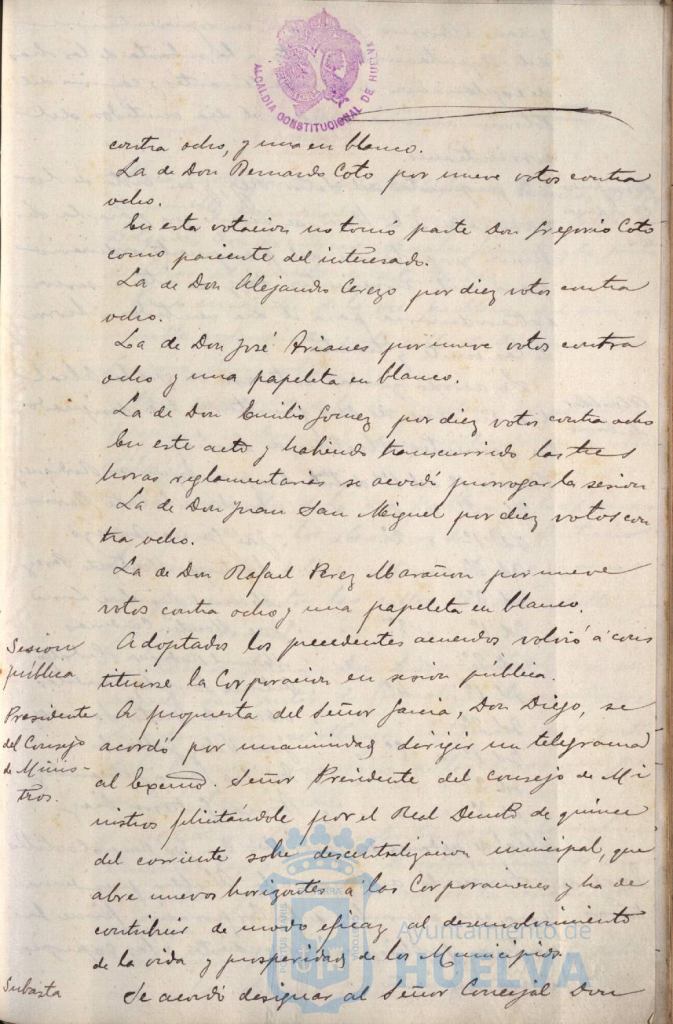 ALCALDIA CONSTITUCIONAL DE HUELVA
contra ocho, y una en blanco.
La de Don Bernardo Coto por nueve votos contra
ocho.
En esta votacion no tomó parte Don Gregorio Coto
como pariente del interesado.
La de Don Alejandro Cerezo por diez votos contra
ocho.
La de Don José Arianes por nueve votos contra
ocho y una papeleta en blanco.
La de Don Emilio Gomez por diez votos contra ocho
En este acto y habiendo transcurrido las tres
horas reglamentarias se acordó prorrogar la sesion
La de Don Juan San Miguel por diez votos con
tra ocho.
La de Don Rafael Perez Marañon por nueve
votos contra ocho y una papeleta en blanco.
Sesion
pública
Adoptados los precedentes acuerdos volvió á cons
tituirse la Corporacion en sesion pública.
Presidente
del Consejo
de Minis-
tros.
A propuesta del Señor Garcia, Don Diego, se
acordó por unanimidad dirigir un telegrama
al Excmo. Señor Presidente del Consejo de Mi
nistros felicitándole por el Real Decreto de quince
del corriente sobre descentralizacion municipal, que
abre nuevos horizontes a las Corporaciones y ha de
contribuir de modo eficaz al desenvolvimiento
de la vida y prosperidad de los Municipios.
Subasta
Se acordó designar al Señor Concejal Don
Ayuntamiento de
HUELVA